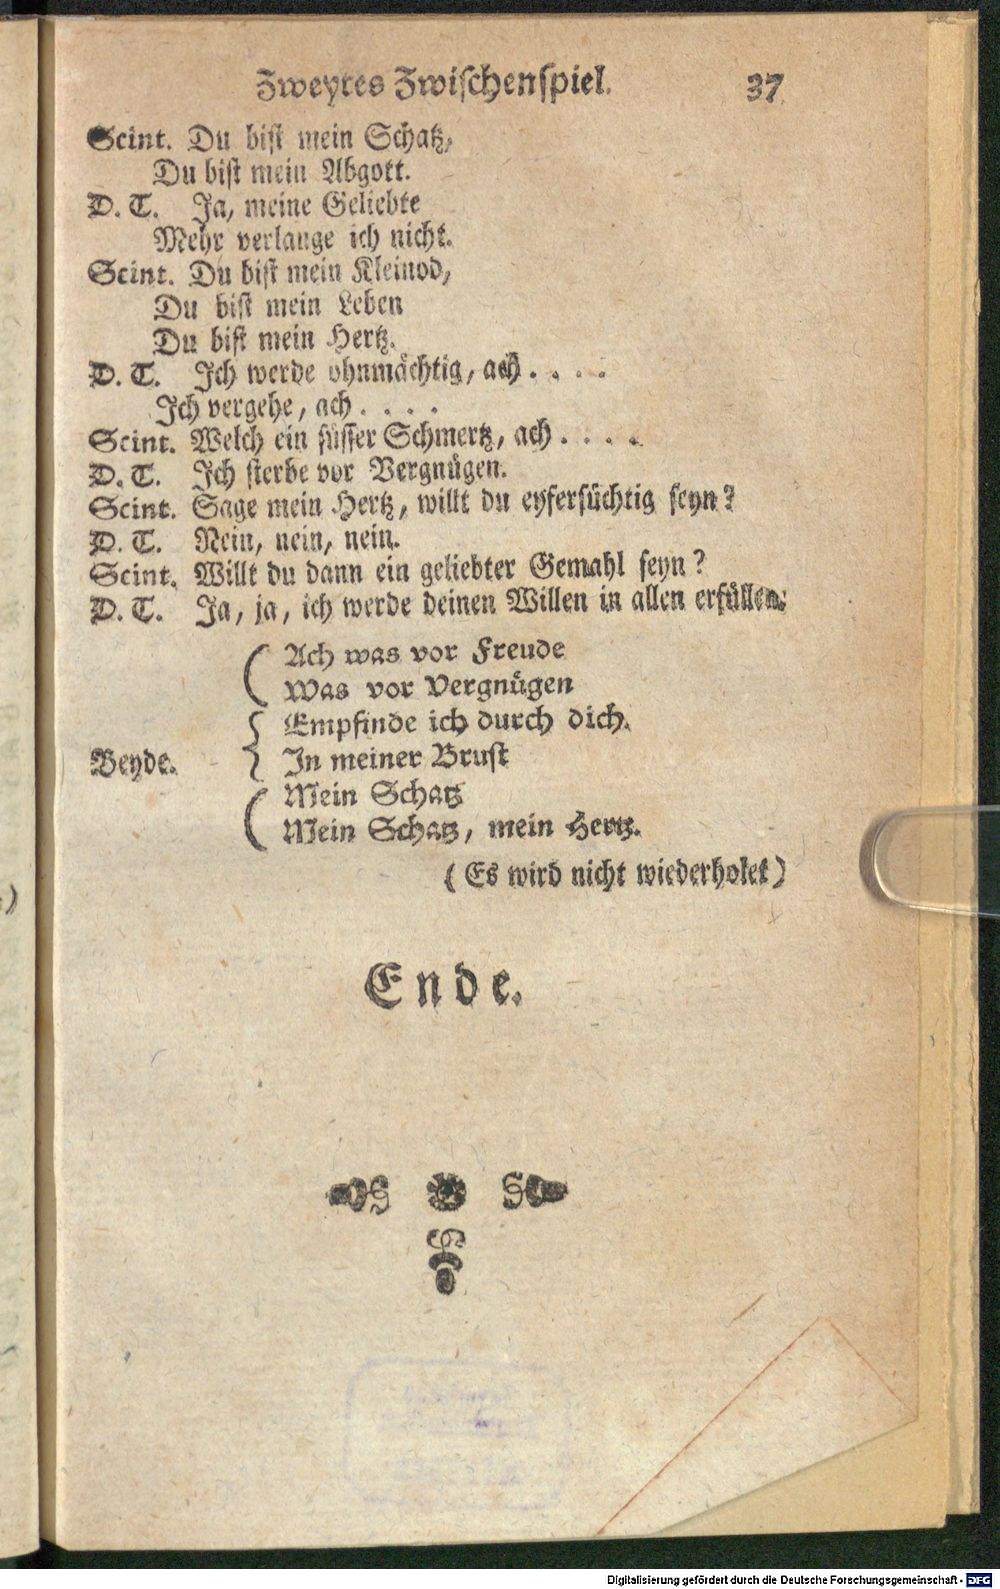 Zweytes Zwischenspiel. 37
Scint. Du bist mein Schatz,
Du bist mein Abgott.
D. T. Ja, meine Geliebte
Mehr verlange ich nicht.
Scint. Du bist mein Kleinod,
Du bist mein Leben
Du bist mein Hertz.
D. T. Ich werde ohnmächtig, ach . . . .
Ich vergehe, ach . . . .
Scint. Welch ein süsser Schmertz, ach . . . .
D. T. Ich sterbe vor Vergnügen.
Scint. Sage mein Hertz, willt du eyfersüchtig seyn?
D. T. Nein, nein, nein.
Scint. Willt du dann ein geliebter Gemahl seyn?
D. T. Ja, ja, ich werde deinen Willen in allen erfüllen.
Ach was vor Freude
Was vor Vergnügen
Empfinde ich durch dich.
Beyde. In meiner Brust
Mein Schatz
Mein Schatz, mein Hertz.
(Es wird nicht wiederholet)
Ende.
Digitalisierung gefördert durch die Deutsche Forschungsgemeinschaft - DFG